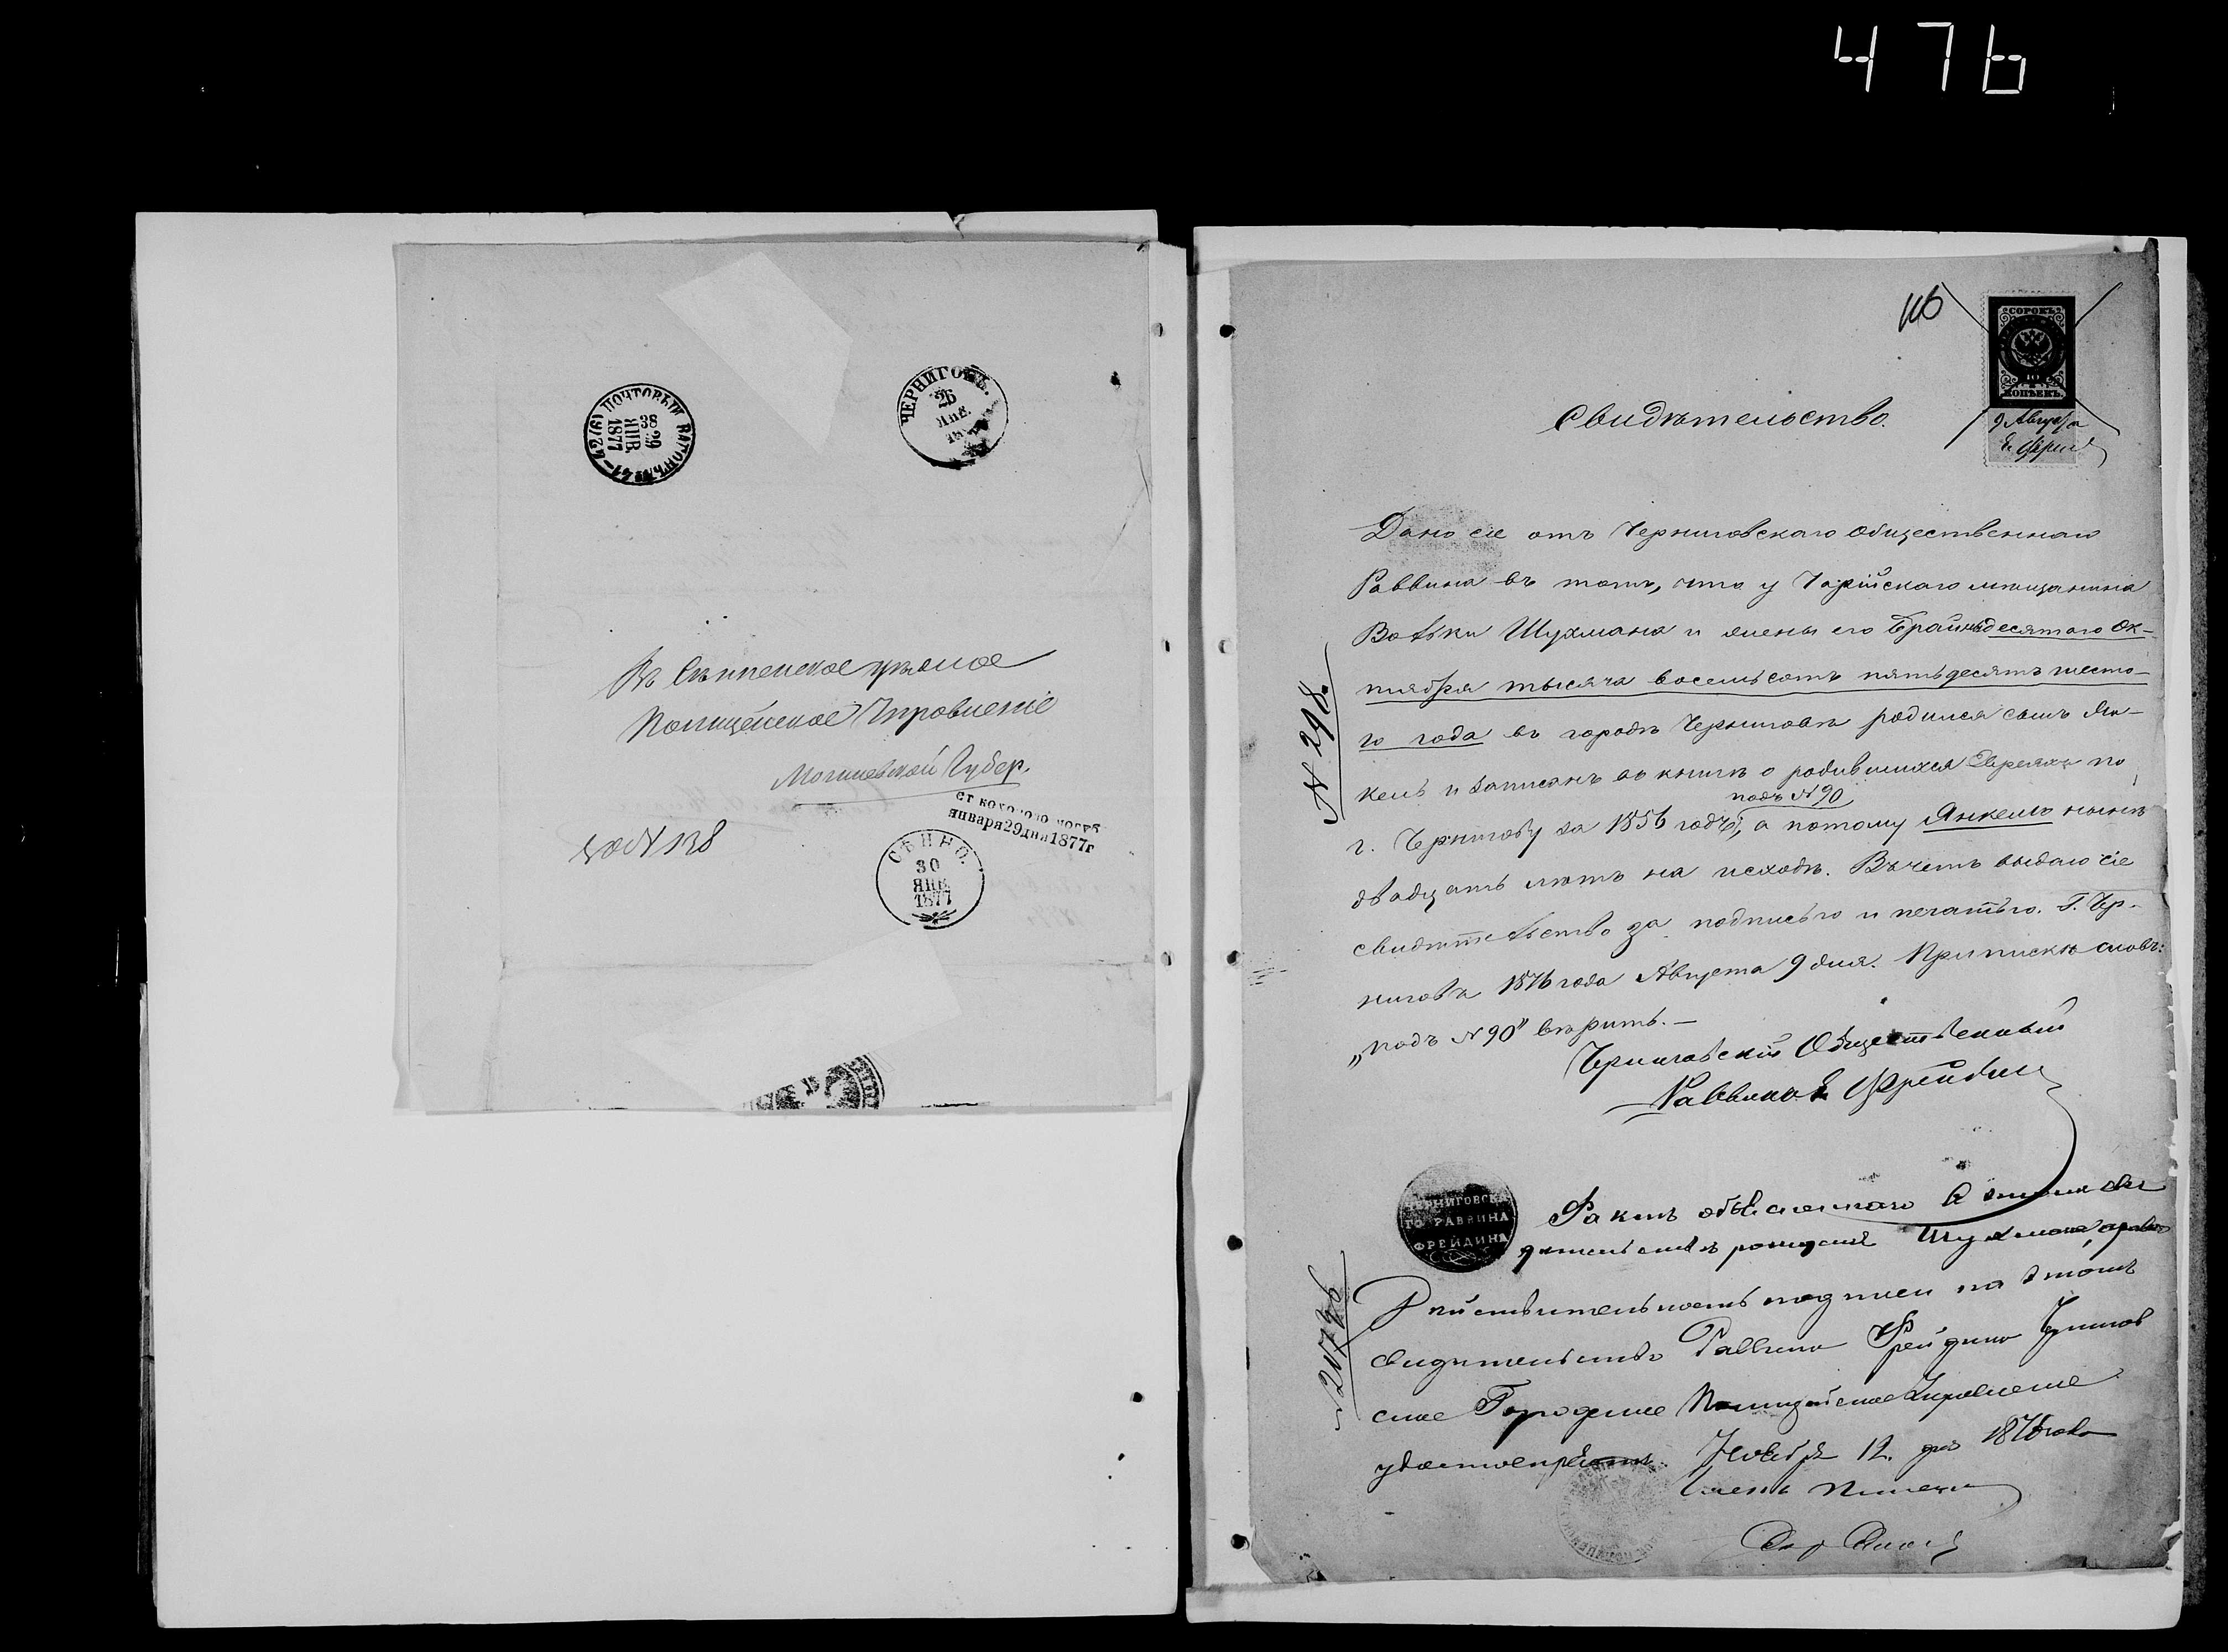 476
ПОЧТОВЫЙ ВАГОНЪ № 41-42 (6)
38
29
ЯНВ.
1877
ЧЕРНИГОВЪ.
26
ЯНВ.
Въ Сѣнненское уѣздное
Полицейское Управленіе
Могилевской Губер.
января 29 дня 1877 г
№ 138
СѢННО.
30
ЯНВ.
1877
116
СОРОКЪ
40
КОПѢЕКЪ.
9 Августа
Свидѣтельство.
№ 298.
Дано сіе отъ Черниговскаго Общественнаго
Раввина въ томъ, что у мѣщанина
Вольки Шухмана и жены его Брайны десятаго Ок-
тября тысяча восемьсотъ пятьдесятъ шесто-
го года въ городѣ Черниговѣ родился сынъ Ян-
кель и записанъ въ книгѣ о родившихся Евреяхъ по
подъ № 90
г. Чернигову за 1856 годъ, а потому Янкелю нынѣ
двадцать лѣтъ на исходѣ. Въ чемъ выдаю сіе
свидѣтельство за подписью и печатью. Г. Чер-
ниговъ 1876 года Августа 9 дня. Приписки словъ:
„подъ № 90" вѣрить.—
Черниговскій Общественный
Раввинъ Е Фрейдин
ЧЕРНИГОВСКА
ГО РАВВИНА
ФРЕЙДИНА
Фактъ объясненнаго въ этомъ сви
дѣтельствѣ рожденія Шухмана, равно
дѣйствительность подписи на этомъ
свидѣтельствѣ Раввина Фрейдина Чернигов
ское Городское Полицейское Управленіе
удостовѣряетъ. Ноября 12 дня 1876 года
Членъ Полиціи